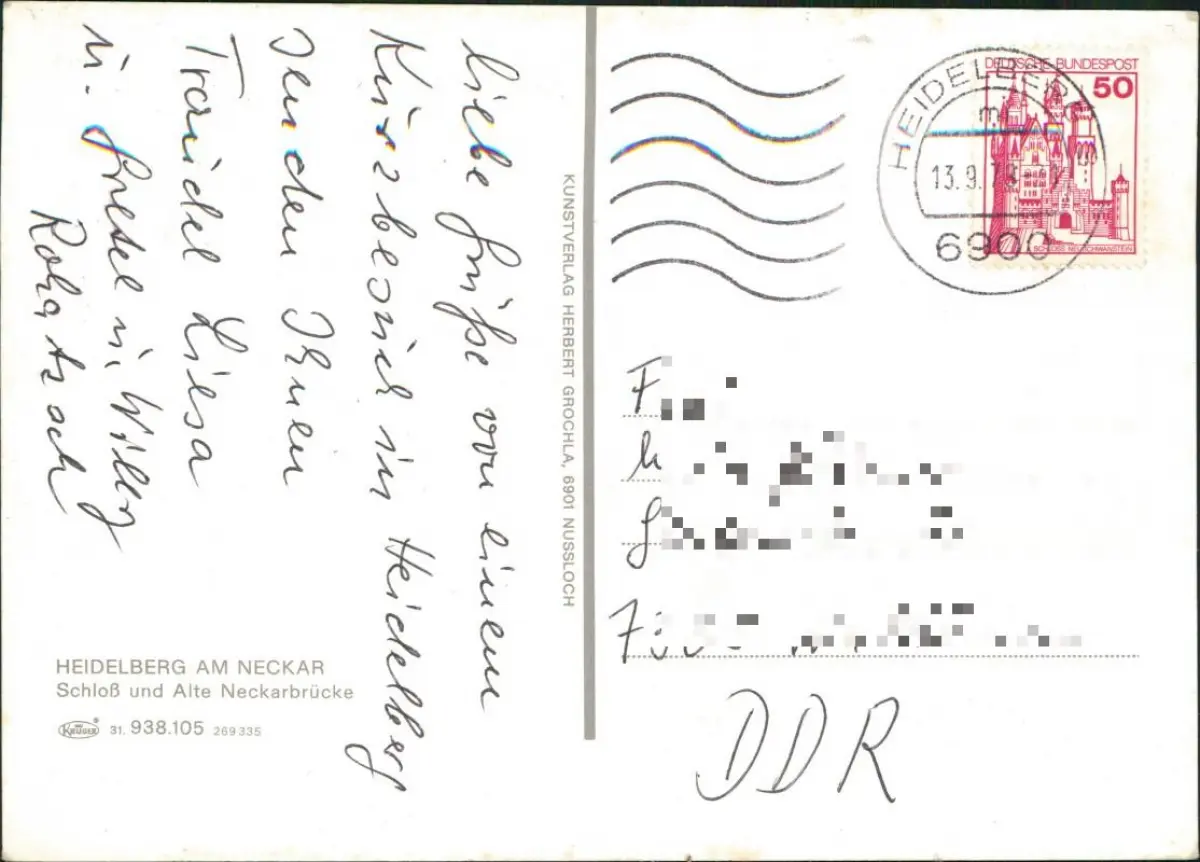 Liebe Grüße von einem
Kurzbesuch in Heidelberg
senden Ihnen
Traudel Liesa
u. Gretel u. Willy
Rohatsch
KUNSTVERLAG HERBERT GROCHLA, 6901 NUSSLOCH
HEIDELBERG AM NECKAR
Schloß und Alte Neckarbrücke
KRÜGER ® 31. 938.105 269 335
DEUTSCHE BUNDESPOST
50
SCHLOSS NEUSCHWANSTEIN
HEIDELBERG
13.9.7
6900
DDR